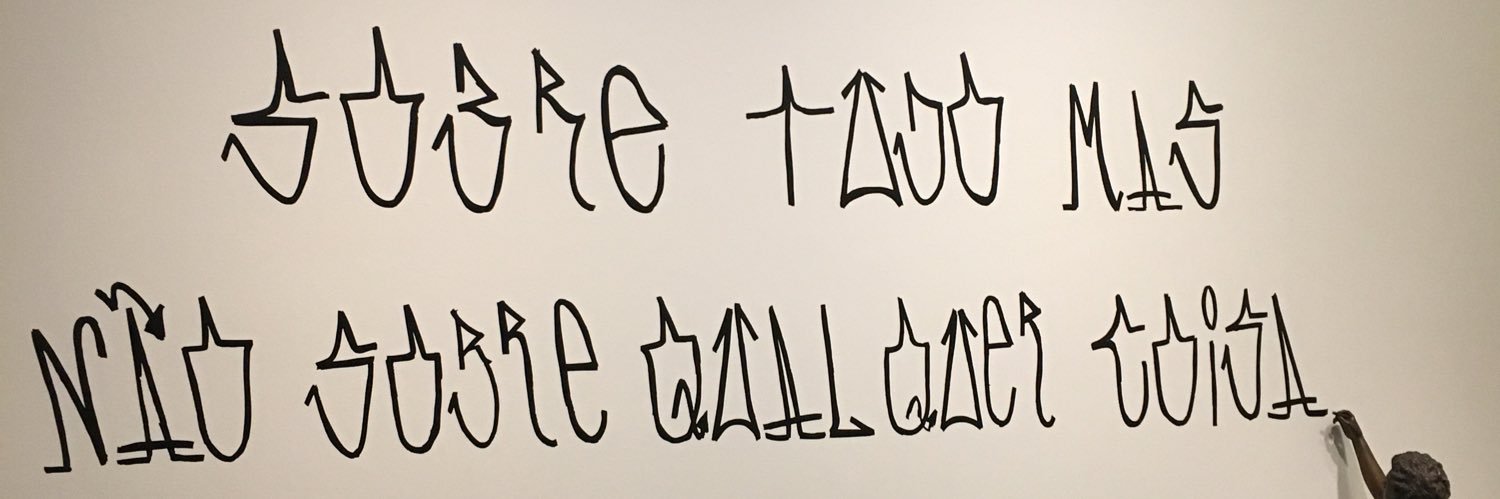 SOBRE TUDO MAS
NÃO SOBRE QUALQUER COISA